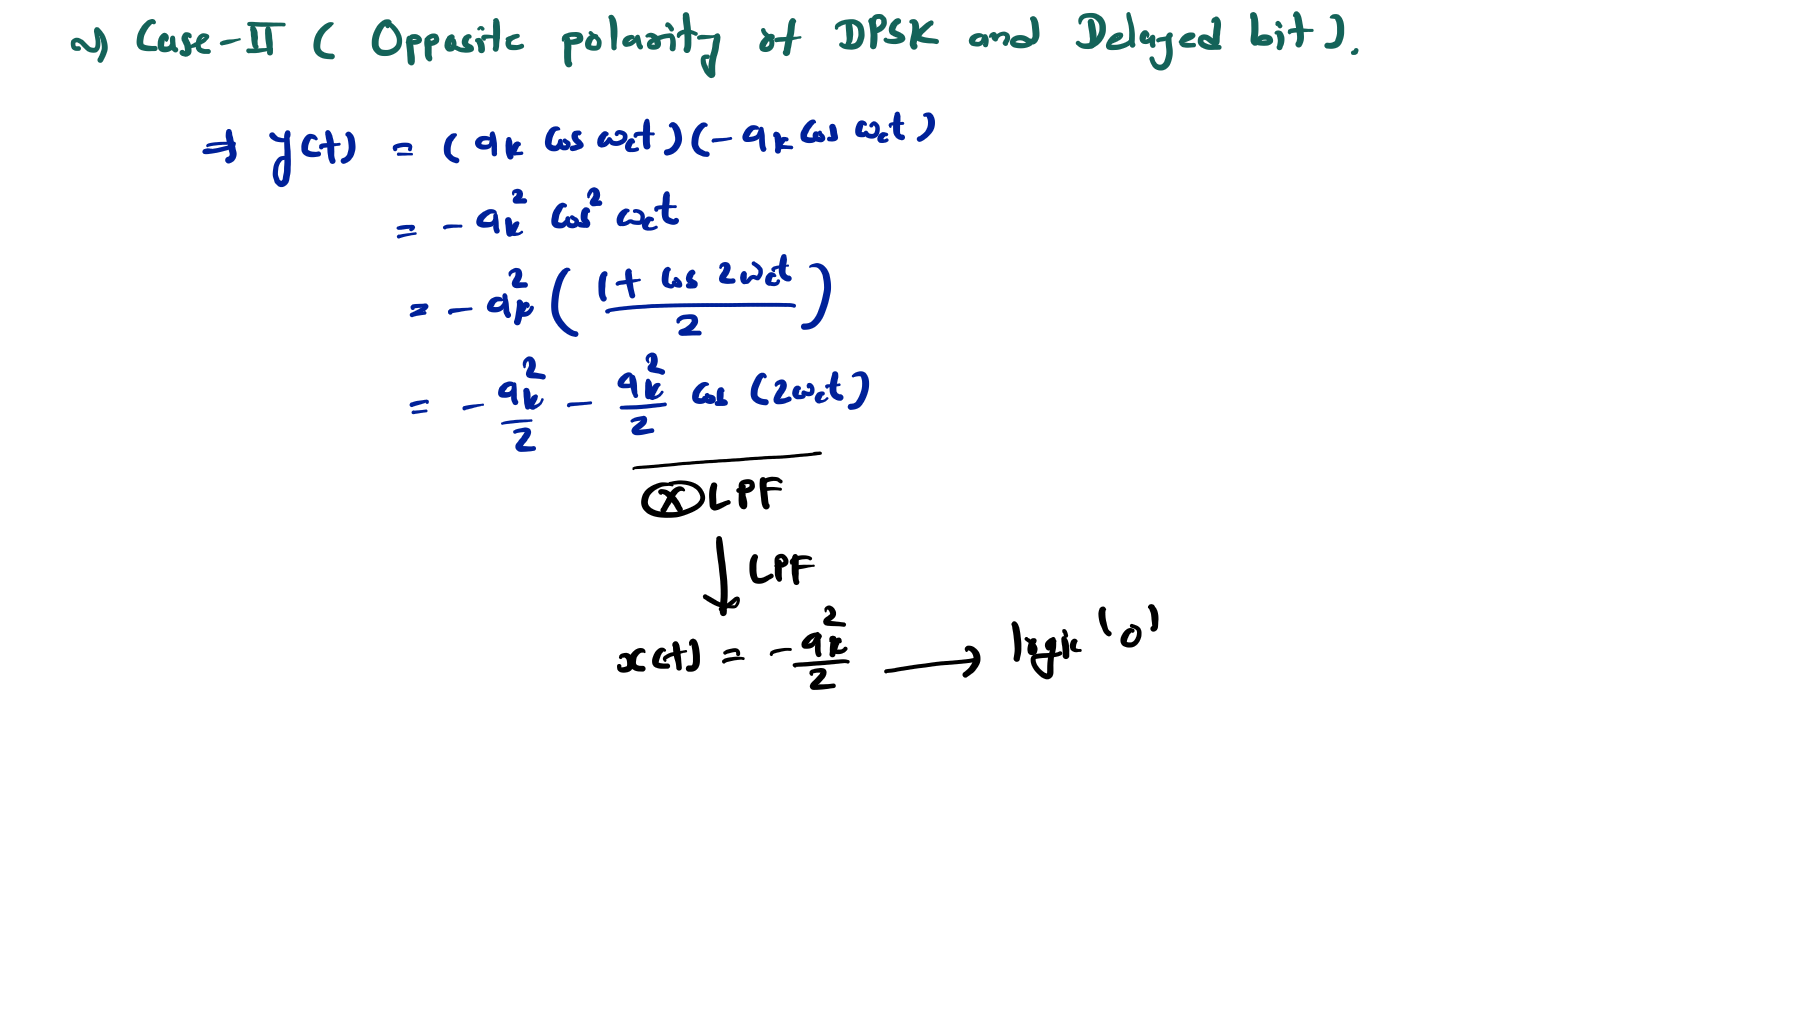 ~) Case-II ( Opposite polarity of DPSK and Delayed bit).
⇒ y(t) = (a_k cos ω_c t)(-a_k cos ω_c t)
= - a_k² cos² ω_c t
= - a_k² ( (1 + cos 2ω_c t) / 2 )
= - a_k²/2 - a_k²/2 cos (2ω_c t)
ⓧ LPF
↓ LPF
x(t) = - a_k²/2 → logic '0'